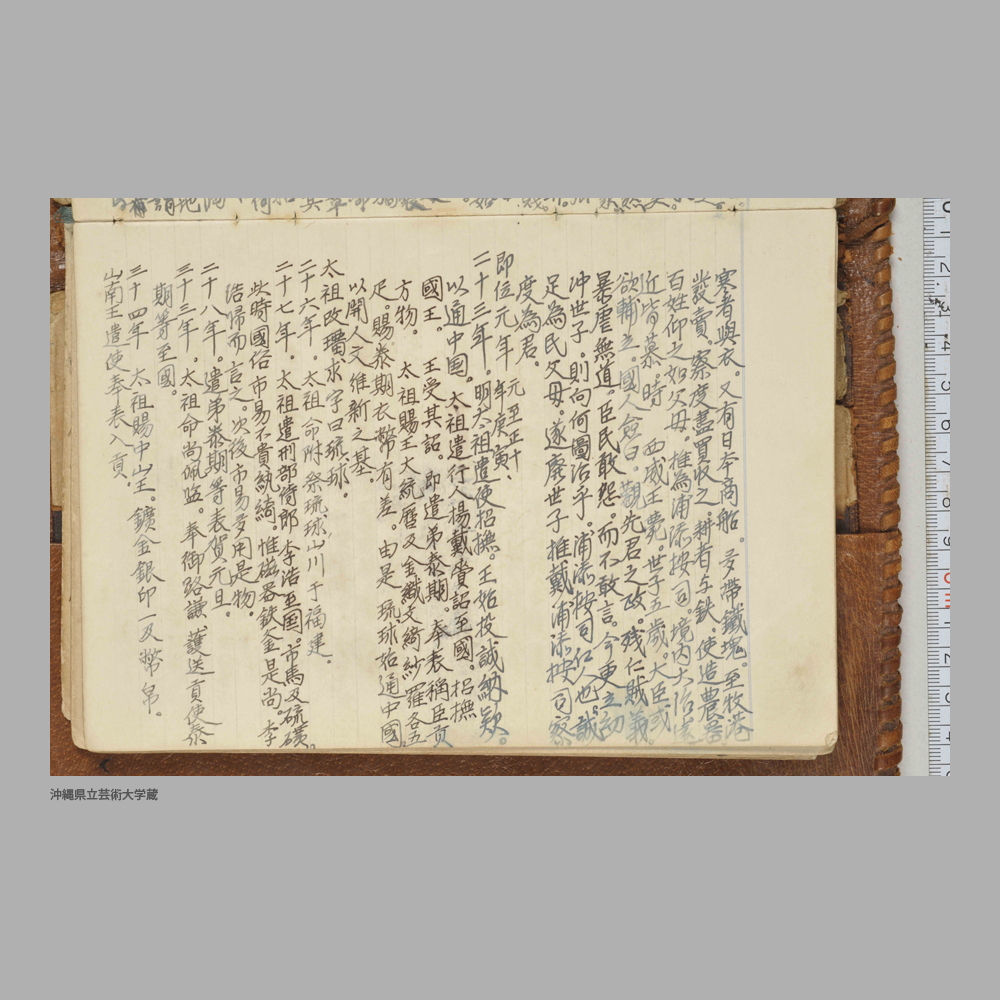 寒者與衣。又有日本商船。多帶鐵塊。至牧港
發賣。察度盡買収之。耕者与鉄。使造農器
百姓仰之如父母。推為浦添按司。境内大治遠
近皆慕時 西威王薨。世子五歳。大臣或
欲輔立。國人僉曰。觀先君之政。残仁賊義。
暴虐無道。臣民敢怨。而不敢言。今更立幼
冲世子。則向何圖治乎。浦添按司仁人也。誠
足為民父母。遂廃世子推戴浦添按司察
度為君。
即位元年 元至正十年庚寅、
二十三年。明太祖遣使招撫。王始投誠納欵。
以通中国。太祖遣行人楊載賫詔至國。招撫
國王。 王受其詔。即遣弟泰期。奉表稱臣貢
方物。 太祖賜王大統暦及金織文綺紗羅各五
疋。賜泰期衣幣有差。由是琉球始通中國。
以開人文維新之基。
太祖改瓊求字曰琉球。
二十六年。太祖命附祭琉球山川于福建。
二十七年。太祖遣刑部侍郎李浩至国。市馬及硫磺。
此時國俗市易不貴紈綺。惟磁器鉄釜是尚。李
浩歸而言之。次後市易多用是物。
二十八年。遣弟泰期等表賀元旦。
三十三年。太祖命尚佩監。奉御路謙護送貢使泰
期等至國。
三十四年 太祖賜中山王。鍍金銀印一及幣帛。
山南王遣使奉表入貢。
沖縄県立芸術大学蔵